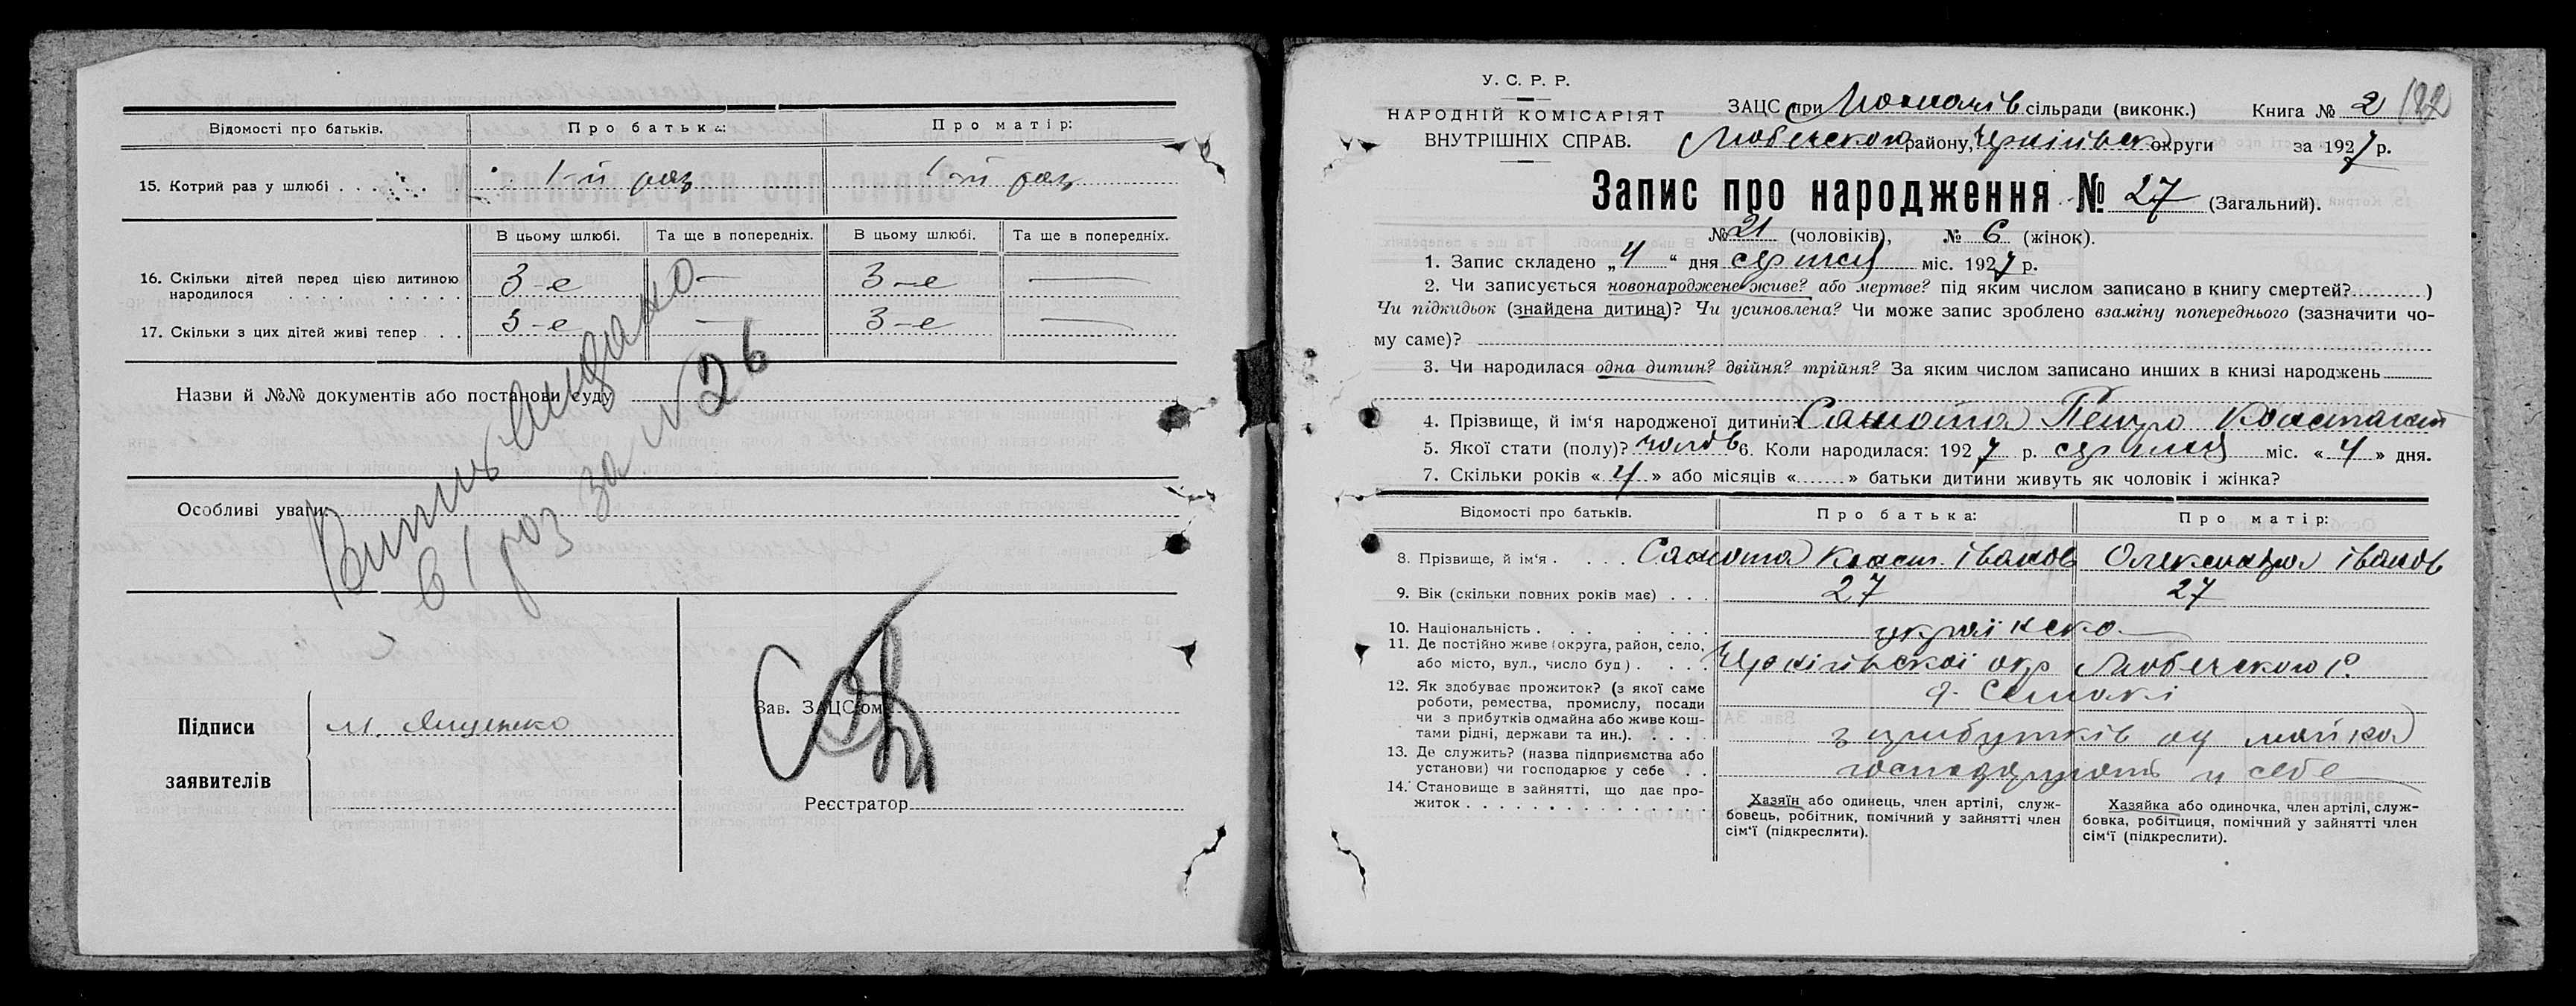 Відомості про батьків. Про батька: Про матір:
15. Котрий раз у шлюбі . . . . . . 1-й раз 1-й раз
В цьому шлюбі. Та ще в попередніх. В цьому шлюбі. Та ще в попередніх.
16. Скільки дітей перед цією дитиною 3-е — 3-е —
народилося . . . . . . . . .
17. Скільки з цих дітей живі тепер . . . 3-е — 3-е —
Назви й №№ документів або постанови суду
Особливі уваги:
раз за №26
Підписи
заявителів
М. Ященко
Зав. ЗАЦС'ом
Реєстратор
У. С. Р. Р.
НАРОДНІЙ КОМІСАРІЯТ
ВНУТРІШНІХ СПРАВ.
ЗАЦС при сільради (виконк.) Книга № 2 182
Любечского району, Чернігівск округи за 1927 р.
Запис про народження № 27 (Загальний).
№ 21 (чоловіків), № 6 (жінок).
1. Запис складено „4“ дня серпня міс. 1927 р.
2. Чи записується новонароджене живе? або мертве? під яким числом записано в книгу смертей? )
Чи підкидьок (знайдена дитина)? Чи усиновлена? Чи може запис зроблено взаміну попереднього (зазначити чо-
му саме)?
3. Чи народилася одна дитин? двійня? трійня? За яким числом записано инших в книзі народжень
4. Прізвище, й ім'я народженої дитини? Самота Петро Констант
5. Якої стати (полу)? чолов 6. Коли народилася: 1927 р. серпня міс. «4» дня.
7. Скільки років «4» або місяців « » батьки дитини живуть як чоловік і жінка?
Відомості про батьків. Про батька: Про матір:
8. Прізвище, й ім'я . . . . Самота Конст. Іванов Олександра Іванов
9. Вік (скільки повних років має) . . . 27 27
10. Національність . . . . . . . українско
11. Де постійно живе (округа, район, село, Чернігівської окр Любечского р.
або місто, вул., число буд) . . . .
12. Як здобуває прожиток? (з якої саме
роботи, ремества, промислу, посади
чи з прибутків одмайна або живе кош- з прибутків од майна
тами рідні, держави та ин.). . . . .
13. Де служить? (назва підприємства або господарують у себе
установи) чи господарює у себе . .
14. Становище в зайнятті, що дає про-
житок . . . . . . . . . . . . . . .
Хазяїн або одинець, член артілі, служ-
бовець, робітник, помічний у зайнятті член
сім'ї (підкреслити).
Хазяйка або одиночка, член артілі, служ-
бовка, робітциця, помічний у зайнятті член
сім'ї (підкреслити).